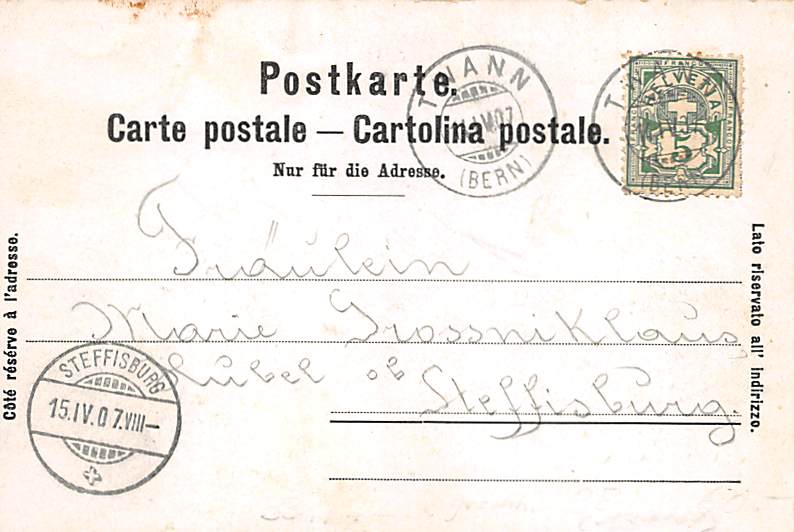 Postkarte.
Carte postale — Cartolina postale.
Nur für die Adresse.
TWANN
(BERN)
TWANN
HELVETIA
FRANCO
5
Côté réservé à l'adresse.
Lato riservato all' indirizzo.
Fräulein
Marie Grossniklaus
Hubel ob
Steffisburg.
STEFFISBURG
15.IV.07.VIII—